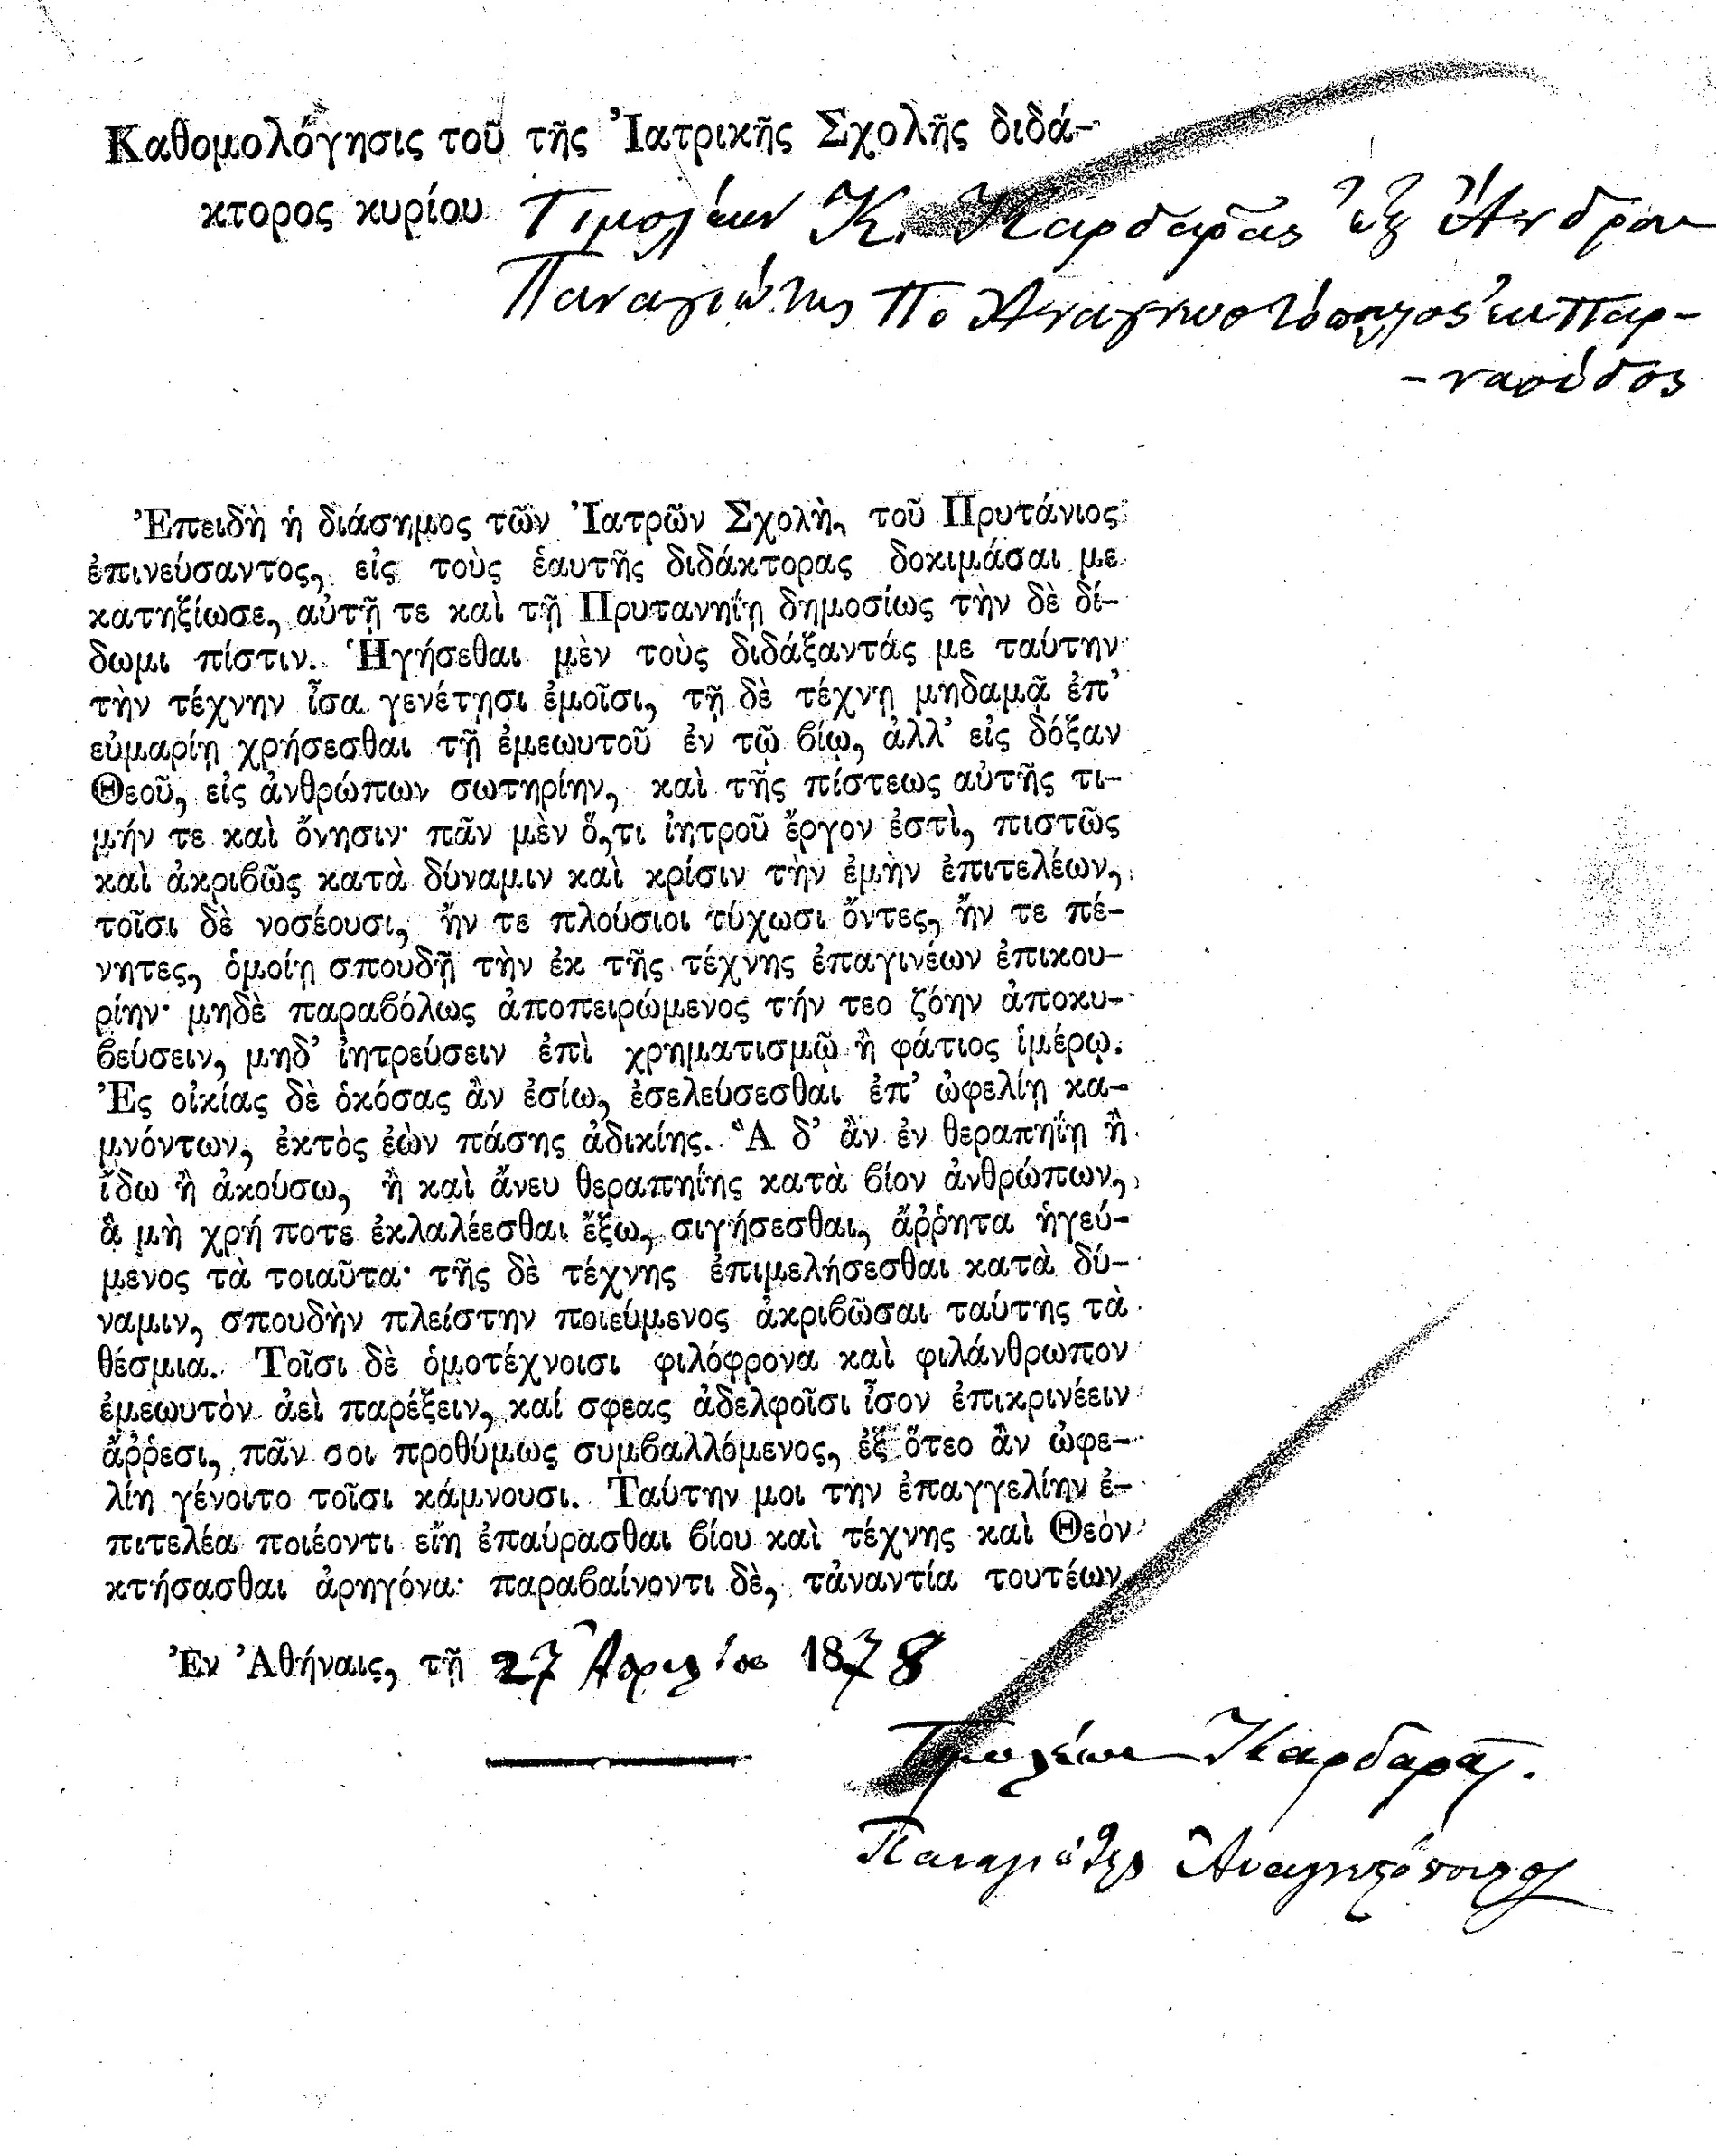 Καθομολόγησις τοῦ τῆς Ἰατρικῆς Σχολῆς διδά-
κτορος κυρίου Τιμολέων Κ. Καρδαρᾶς ἐξ Ἄνδρου
Παναγιώτης Π. Ἀναγνωστόπουλος ἐκ Παρ-
-νασίδος
Ἐπειδὴ ἡ διάσημος τῶν Ἰατρῶν Σχολὴ, τοῦ Πρυτάνιος
ἐπινεύσαντος, εἰς τοὺς ἑαυτῆς διδάκτορας δοκιμάσαι με
κατηξίωσε, αὐτῇ τε καὶ τῇ Πρυτανηΐῃ δημοσίως τὴν δὲ δί-
δωμι πίστιν. Ἡγήσεθαι μὲν τοὺς διδάξαντάς με ταύτην
τὴν τέχνην ἶσα γενέτῃσι ἐμοῖσι, τῇ δὲ τέχνῃ μηδαμᾷ ἐπ’
εὐμαρίῃ χρήσεσθαι τῇ ἐμεωυτοῦ ἐν τῷ βίῳ, ἀλλ’ εἰς δόξαν
Θεοῦ, εἰς ἀνθρώπων σωτηρίην, καὶ τῆς πίστεως αὐτῆς τι-
μήν τε καὶ ὄνησιν· πᾶν μὲν ὅ,τι ἰητροῦ ἔργον ἐστὶ, πιστῶς
καὶ ἀκριβῶς κατὰ δύναμιν καὶ κρίσιν τὴν ἐμὴν ἐπιτελέων,
τοῖσι δὲ νοσέουσι, ἤν τε πλούσιοι τύχωσι ὄντες, ἤν τε πέ-
νητες, ὁμοίῃ σπουδῇ τὴν ἐκ τῆς τέχνης ἐπαγινέων ἐπικου-
ρίην· μηδὲ παραβόλως ἀποπειρώμενος τήν τεο ζόην ἀποκυ-
βεύσειν, μηδ’ ἰητρεύσειν ἐπὶ χρηματισμῷ ἢ φάτιος ἱμέρῳ.
Ἐς οἰκίας δὲ ὁκόσας ἂν ἐσίω, ἐσελεύσεσθαι ἐπ’ ὠφελίῃ κα-
μνόντων, ἐκτὸς ἐὼν πάσης ἀδικίης. Ἃ δ’ ἂν ἐν θεραπηΐῃ ἢ
ἴδω ἢ ἀκούσω, ἢ καὶ ἄνευ θεραπηίης κατὰ βίον ἀνθρώπων,
ἃ μὴ χρή ποτε ἐκλαλέεσθαι ἔξω, σιγήσεσθαι, ἄῤῥητα ἡγεύ-
μενος τὰ τοιαῦτα· τῆς δὲ τέχνης ἐπιμελήσεσθαι κατὰ δύ-
ναμιν, σπουδὴν πλείστην ποιεύμενος ἀκριβῶσαι ταύτης τὰ
θέσμια. Τοῖσι δὲ ὁμοτέχνοισι φιλόφρονα καὶ φιλάνθρωπον
ἐμεωυτὸν ἀεὶ παρέξειν, καί σφεας ἀδελφοῖσι ἶσον ἐπικρινέειν
ἄῤῥεσι, πᾶν σοι προθύμως συμβαλλόμενος, ἐξ ὅτεο ἂν ὠφε-
λίη γένοιτο τοῖσι κάμνουσι. Ταύτην μοι τὴν ἐπαγγελίην ἐ-
πιτελέα ποιέοντι εἴη ἐπαύρασθαι βίου καὶ τέχνης καὶ Θεὸν
κτήσασθαι ἀρηγόνα· παραβαίνοντι δὲ, τἀναντία τουτέων
Ἐν Ἀθήναις, τῇ 27 Ἀπριλίου 1878
Τιμολέων Καρδαρᾶς.
Παναγιώτης Ἀναγνωστόπουλος